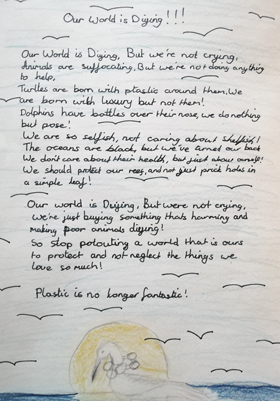 Our World is Dijing!!!
Our World is Dijing, But we're not crying,
Animals are suffocating, But we're not doing anything
to help,
Turtles are born with plastic around them, We
are born with luxury but not them!
Dolphins have bottles over their nose, we do nothing
but pose!
We are so selfish, not caring about shellfish!
The oceans are black, but we've turned our back
We don't care about their health, but just about ourself!
We should protect our reef, and not just prick holes in
a simple leaf!
Our world is Dijing, But were not crying,
we're just buying something thats harming and
making poor animals dijing!
So stop polouting a world that is ours
to protect and not neglect the things we
love so much!
Plastic is no longer fantastic!